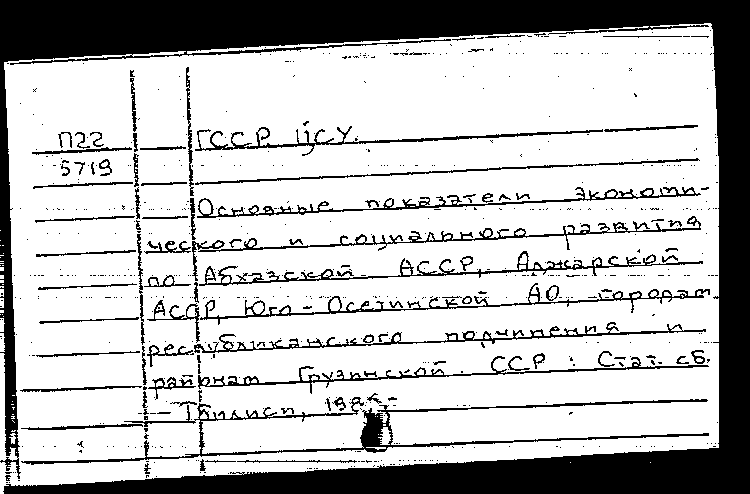 П22
5719
ГССР. ЦСУ.
Основные показатели экономи-
ческого и социального развития
по Абхазской АССР, Аджарской
АССР, Юго-Осетинской АО, городам
республиканского подчинения и
районам Грузинской ССР : Стат. сб.
- Тбилиси,